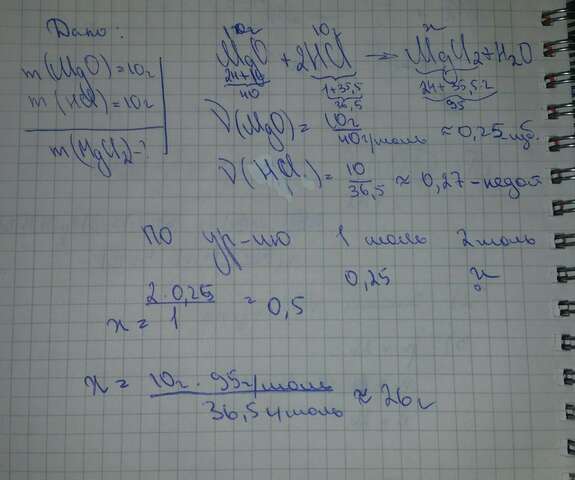 Дано:
m(MgO)=10г
m(HCl)=10г
m(MgCl2)-?
10г 10г x
MgO + 2HCl → MgCl2+H2O
24+16 1+35,5 24+35,5·2
40 36,5 95
ν(MgO)= 10г / 40г/моль ≈0,25-изб.
ν(HCl)= 10 / 36,5 ≈ 0,27-недост
по ур-ию 1 моль 2 моль
0,25 x
x= 2·0,25 / 1 = 0,5
x = 10г·95г/моль / 36,5г/моль ≈ 26г